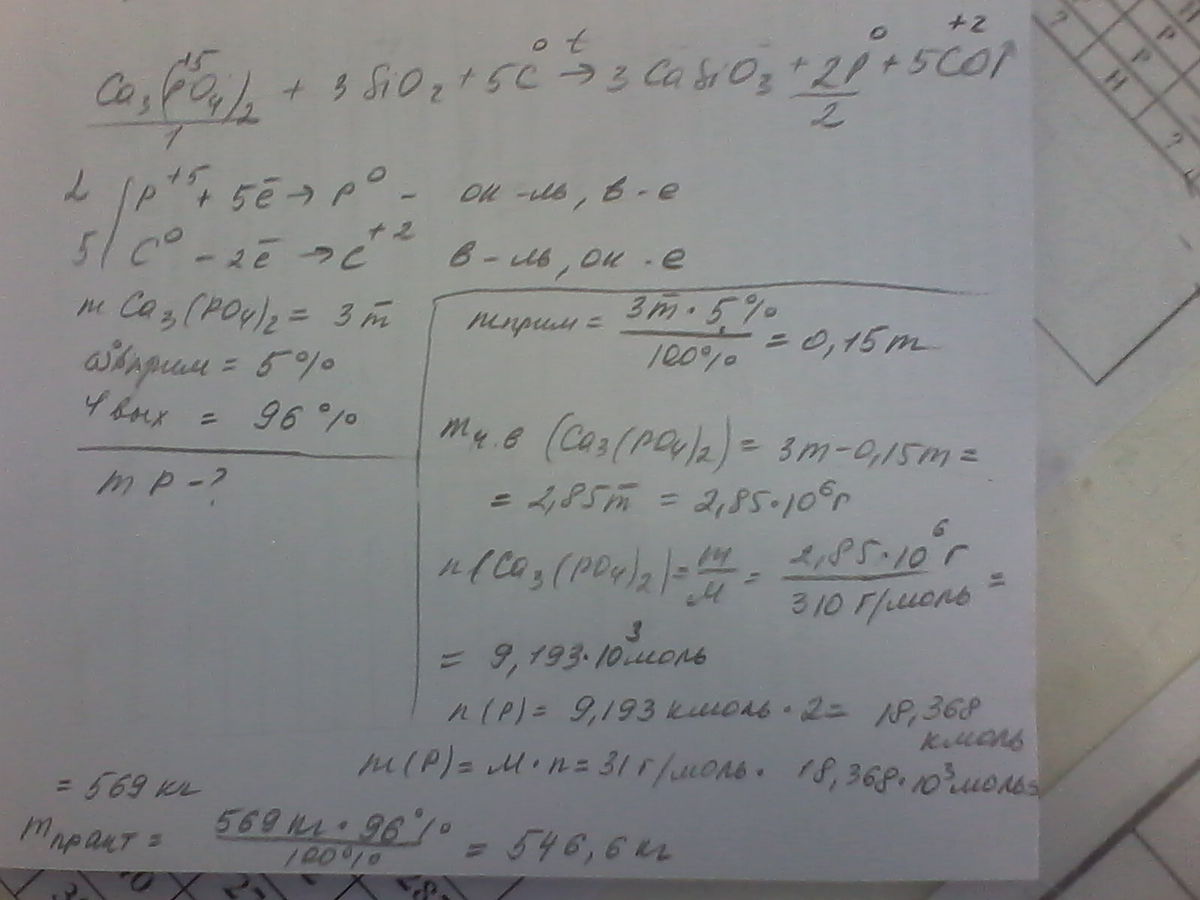 Ca₃(P⁺⁵O₄)₂ + 3SiO₂ + 5C⁰ t→ 3CaSiO₃ + 2P⁰ + 5C⁺²O↑
1 2
2 | P⁺⁵ + 5ē → P⁰ - ок-ль, в-е
5 | C⁰ - 2ē → C⁺² в-ль, ок-е
m Ca₃(PO₄)₂ = 3т
ω прим = 5%
η вых = 96%
m P - ?
m прим = 3т · 5% / 100% = 0,15т
m ч.в (Ca₃(PO₄)₂) = 3т - 0,15т =
= 2,85т = 2,85·10⁶г
n(Ca₃(PO₄)₂) = m/M = 2,85·10⁶г / 310 г/моль =
= 9,193·10³моль
n(P) = 9,193 кмоль · 2 = 18,368
кмоль
m(P) = M·n = 31 г/моль · 18,368·10³моль =
= 569 кг
m практ = 569 кг · 96% / 100% = 546,6 кг